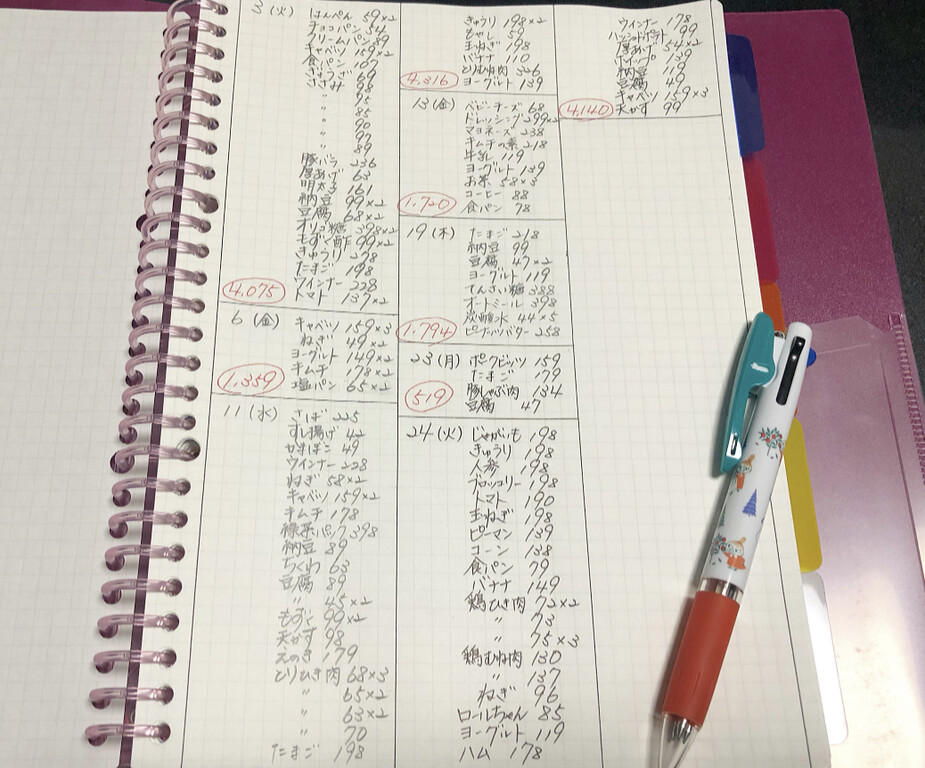 3(火) はんぺん 59×2
チョコパン 54
クリームパン 89
キャベツ 159×2
食パン 107
ぎょうざ 69
ささみ 98
〃 95
〃 85
〃 90
〃 97
〃 89
豚バラ 236
厚あげ 63
明太子 161
納豆 99×2
豆腐 68×2
オリゴ糖 398×2
もずく酢 99×2
きゅうり 278
たまご 198
ウインナー 228
4,075 トマト 137×2
6(金) キャベツ 159×3
ねぎ 49×2
ヨーグルト 149×2
キムチ 178×2
1,359 塩パン 65×2
11(水) さば 225
すし揚げ 42
かまぼこ 49
ウインナー 228
ねぎ 58×2
キャベツ 159×2
キムチ 178
緑茶パック 398
納豆 89
ちくわ 63
豆腐 89
〃 45×2
もずく 99×2
天かす 98
えのき 179
とりひき肉 68×3
〃 65×2
〃 63×2
〃 70
たまご 198
きゅうり 198×2
もやし 59
玉ねぎ 198
バナナ 110
とりむね肉 326
4,316 ヨーグルト 139
13(金) ベビーチーズ 68
ドレッシング 299×2
マヨネーズ 238
キムチの素 218
牛乳 119
ヨーグルト 139
お茶 58×3
コーヒー 88
1,720 食パン 78
19(木) たまご 218
納豆 99
豆腐 47×2
ヨーグルト 119
てんさい糖 388
オートミール 398
炭酸水 44×5
1,794 ピーナッツバター 258
23(月) ポークビッツ 159
たまご 179
豚しゃぶ肉 134
519 豆腐 47
24(火) じゃがいも 198
きゅうり 198
人参 198
ブロッコリー 198
トマト 190
玉ねぎ 198
ピーマン 139
コーン 138
食パン 79
バナナ 149
鶏ひき肉 72×2
〃 73
〃 75×3
鶏むね肉 130
〃 137
ねぎ 96
ロールちゃん 85
ヨーグルト 119
ハム 178
ウインナー 178
ハッシュドポテト 99
厚あげ 54×2
ホイップ 139
納豆 119
豆腐 49
キャベツ 159×3
4,140 天かす 99